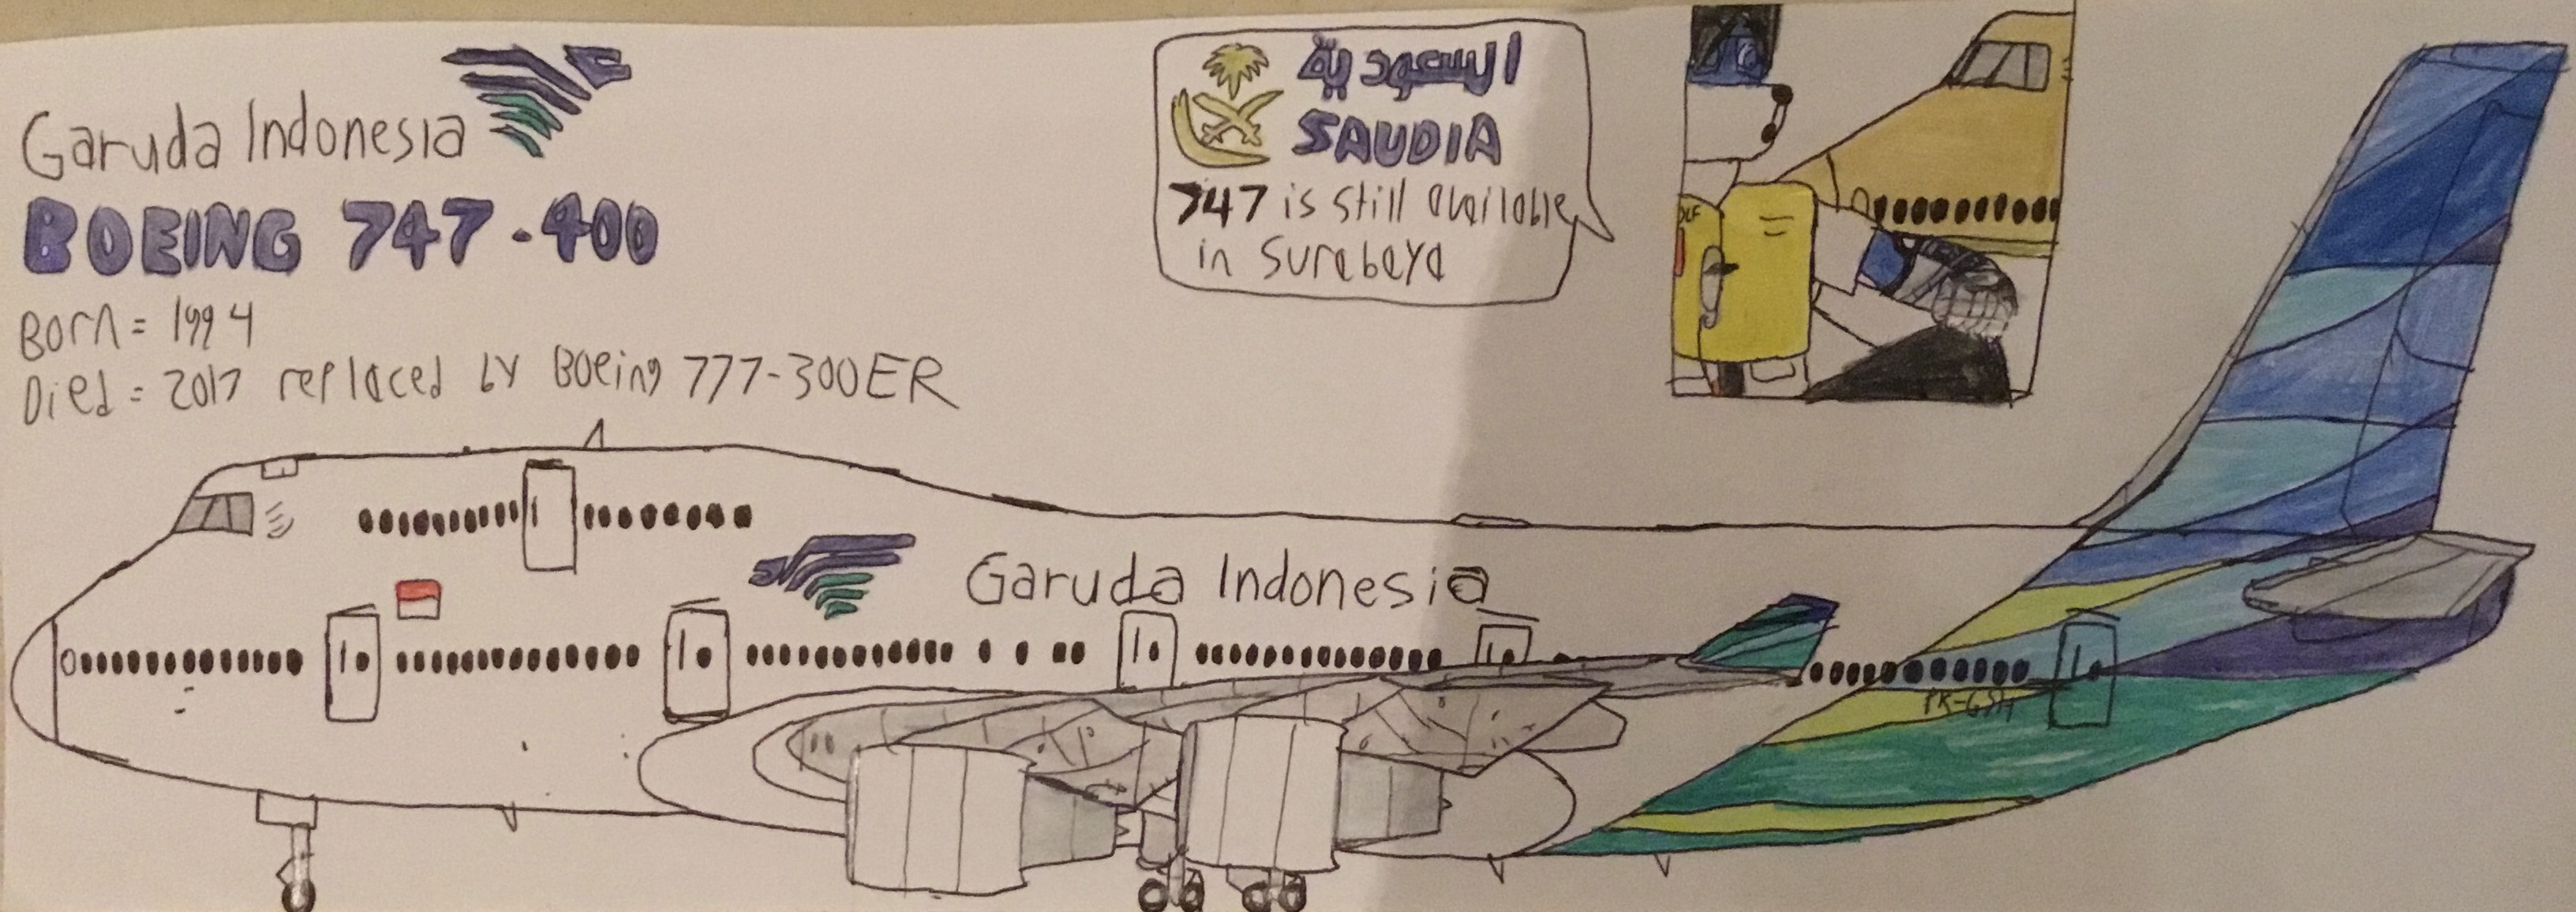 Garuda Indonesia
BOEING 747-400
Born = 1994
Died = 2017 replaced by Boeing 777-300ER
السعودية
SAUDIA
747 is still available
in Surabaya
Garuda Indonesia
PK-GSH